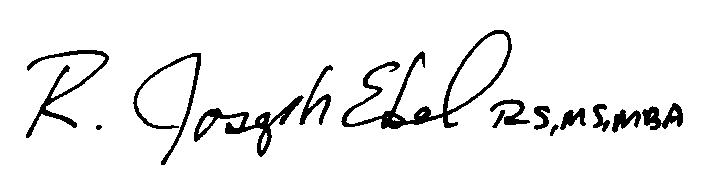 R. Joseph Ebel RS, MS, MBA